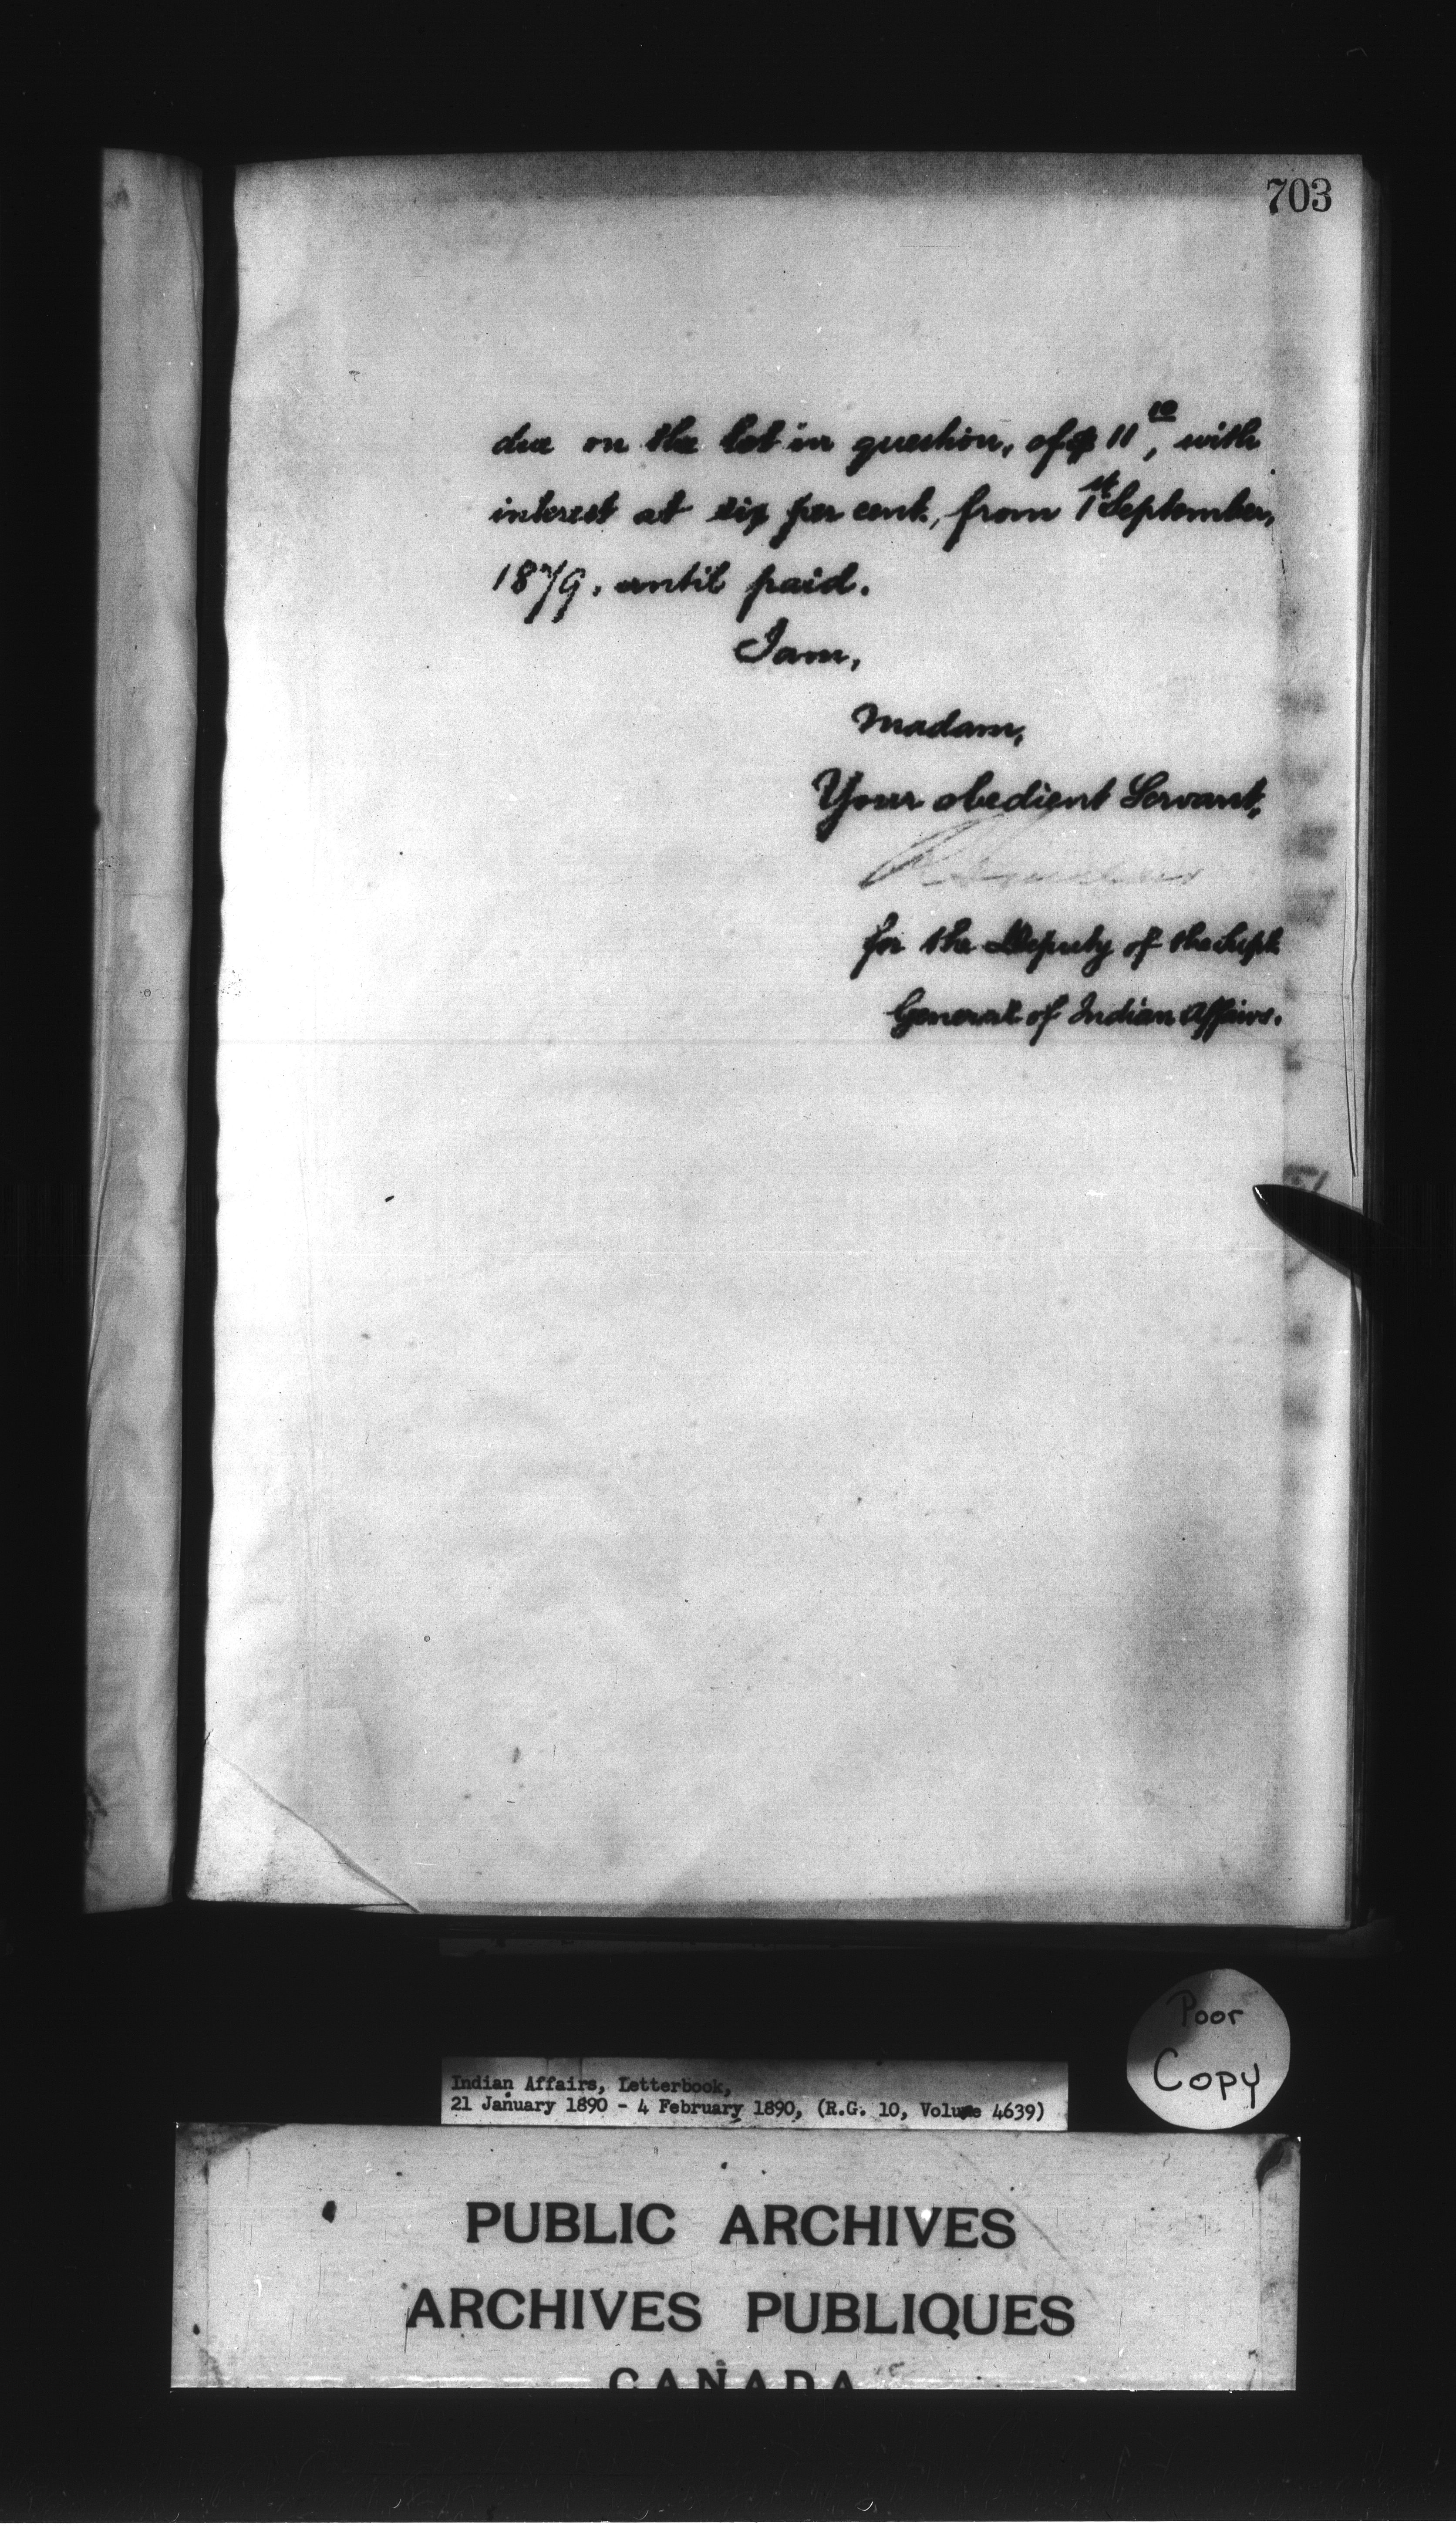 703
due on the lot in question, of $11 10, with
interest at six per cent, from 1st September,
1879, until paid.
I am,
Madam,
Your obedient Servant,
for the Deputy of the Supt
General of Indian Affairs.
Poor
Copy
Indian Affairs, Letterbook,
21 January 1890 - 4 February 1890, (R.G. 10, Volume 4639)
PUBLIC ARCHIVES
ARCHIVES PUBLIQUES
CANADA